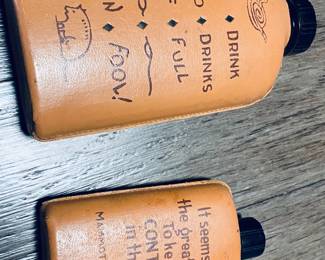 DRINK
O DRINKS
FULL
N FOOL!
It seems
the great
To ke
CONT
in th
MAMMOT